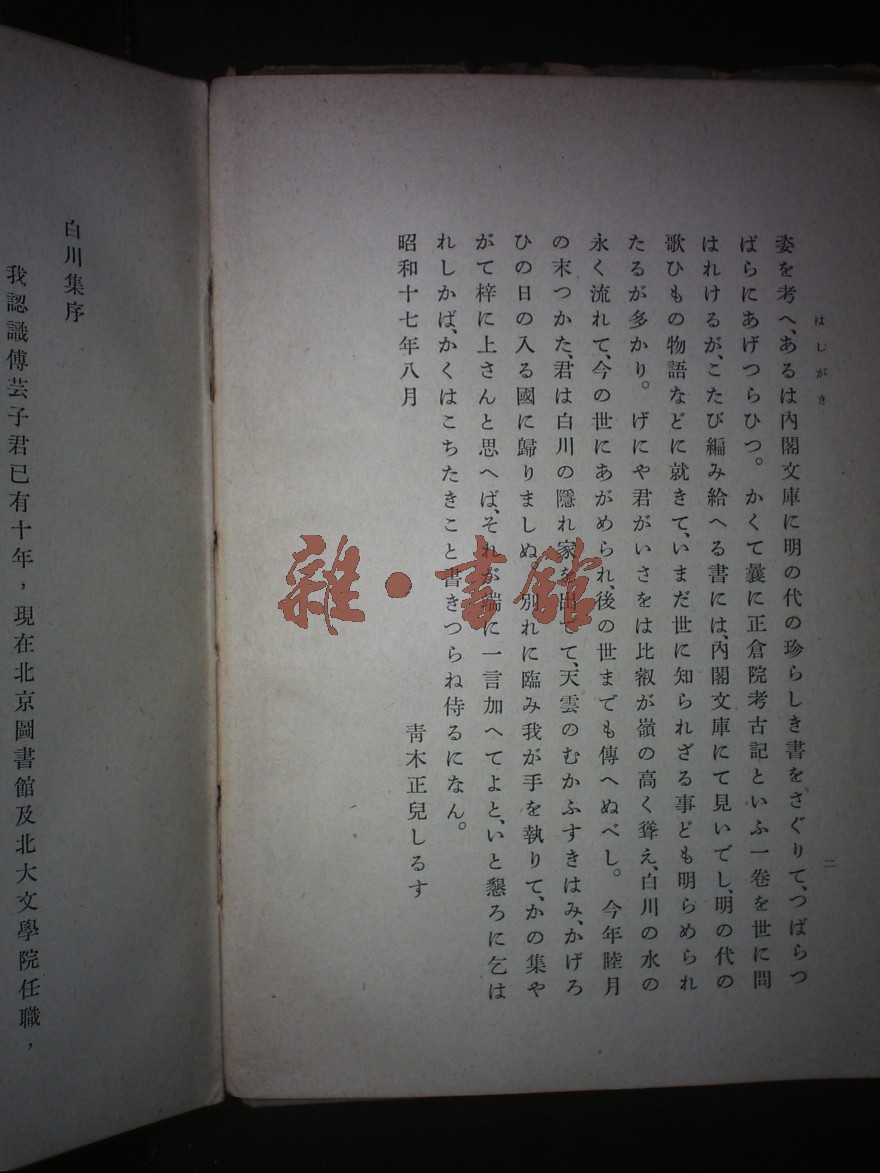 はしがき
二
姿を考へ、あるは內閣文庫に明の代の珍らしき書をさぐりて、つばらつ
ばらにあげつらひつ。かくて曩に正倉院考古記といふ一卷を世に問
はれけるが、こたび編み給へる書には、內閣文庫にて見いでし、明の代の
歌ひもの物語などに就きて、いまだ世に知られざる事ども明らめられ
たるが多かり。げにや君がいさをは比叡が嶺の高く聳え、白川の水の
永く流れて、今の世にあがめられ、後の世までも傳へぬべし。今年睦月
の末つかた、君は白川の隱れ家を出でて、天雲のむかふすきはみ、かげろ
ひの日の入る國に歸りましぬ。別れに臨み我が手を執りて、かの集や
がて梓に上さんと思へば、それが端に一言加へてよと、いと懇ろに乞は
れしかば、かくはこちたきこと書きつらね侍るになん。
昭和十七年八月
靑木正兒しるす
白川集序
我認識傅芸子君已有十年，現在北京圖書館及北大文學院任職，
雜·書館